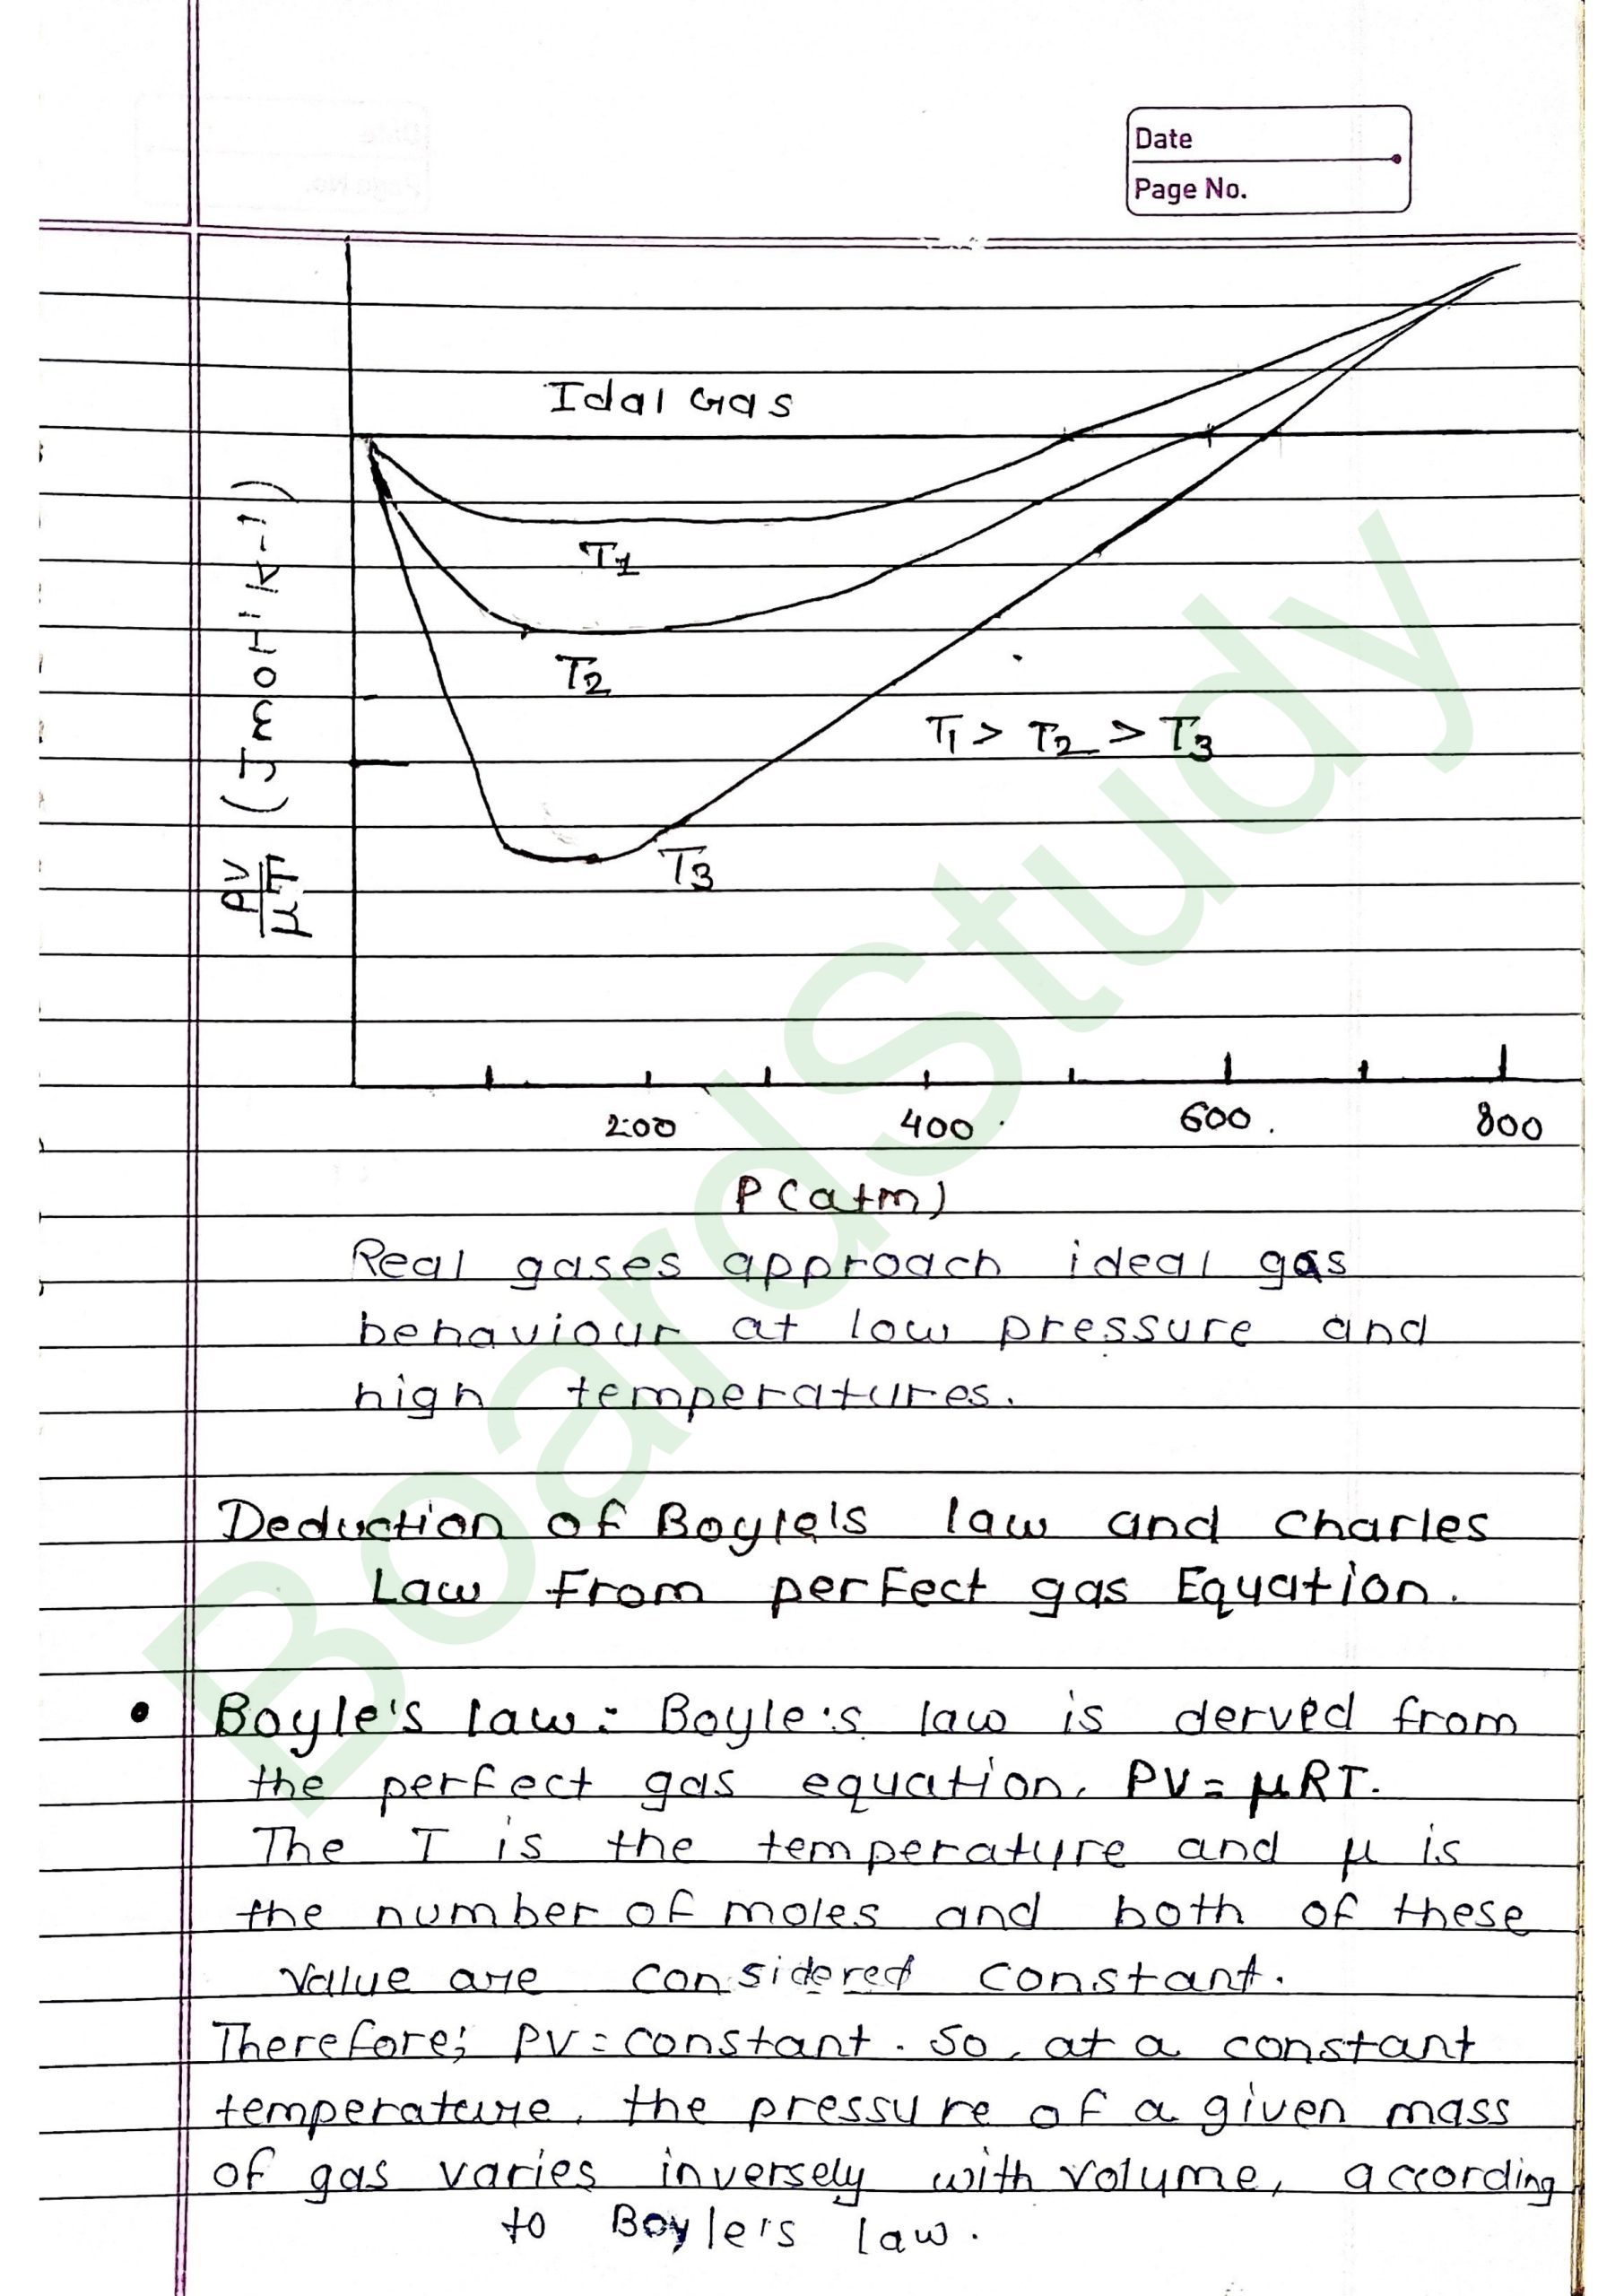 Date
Page No.
Idal Gas
PV/μT (Jmol-1 K-1)
T1
T2
T1 > T2 > T3
T3
200 400 600 800
P(atm)
Real gases approach ideal gas
behaviour at low pressure and
high temperatures.
Deduction of Boyle's law and charles
Law From perfect gas Equation.
• Boyle's law: Boyle's law is derved from
the perfect gas equation, PV = μRT.
The T is the temperature and μ is
the number of moles and both of these
value are considered constant.
Therefore; PV = constant. So, at a constant
temperature, the pressure of a given mass
of gas varies inversely with volume, according
to Boyle's law.
BoardStudy